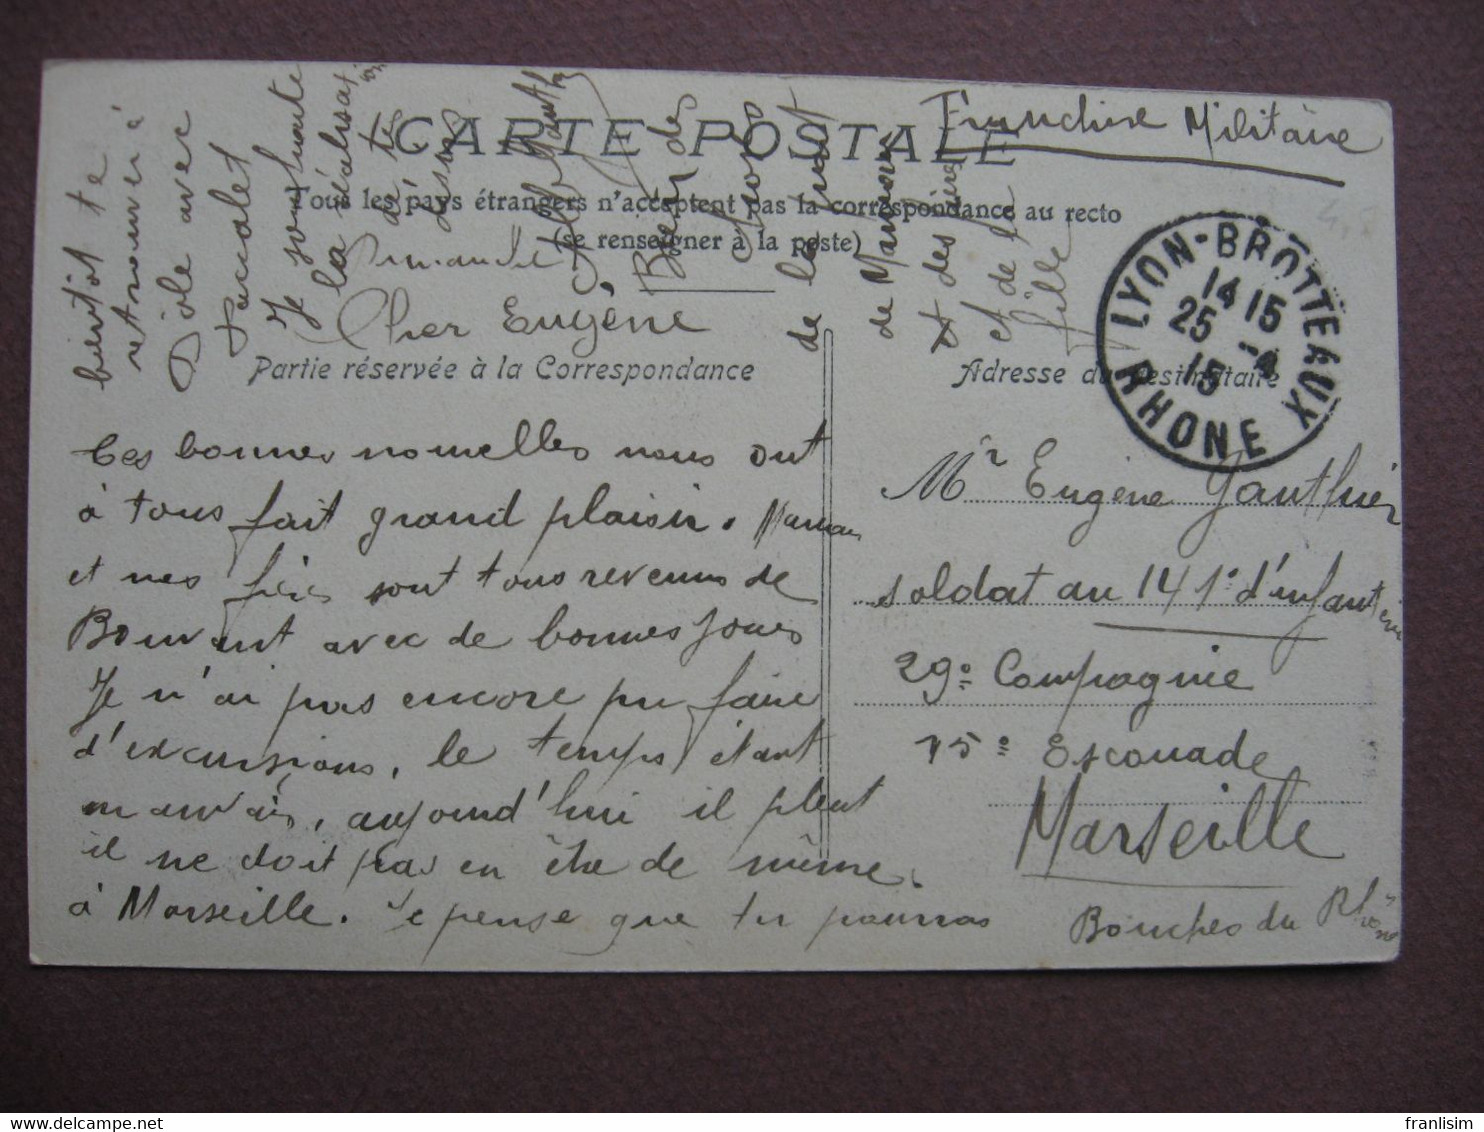 Franchise Militaire
CARTE POSTALE
Tous les pays étrangers n'acceptent pas la correspondance au recto
(se renseigner à la poste)
LYON-BROTTEAUX
14 15
25 -4
15
RHONE
Cher Eugène
Partie réservée à la Correspondance
Tes bonnes nouvelles nous ont
à tous fait grand plaisir. Maman
et mes frères sont tous revenus de
Bouvant avec de bonnes joues
Je n'ai pas encore pu faire
d'excursions, le temps étant
mauvais, aujourd'hui il pleut
il ne doit pas en être de même
à Marseille. Je pense que tu pourras
bientôt te
retrouver à
Dôle avec
Je souhaite
la réalisation
de tes
désirs
Armande Gauthier
Bien des
choses
de la part
de Maman
et des
et de la
fille
Adresse du Destinataire
Mr Eugène Gauthier
soldat au 141e d'infanterie
29e Compagnie
15e Escouade
Marseille
Bouches du Rhône
franlisim